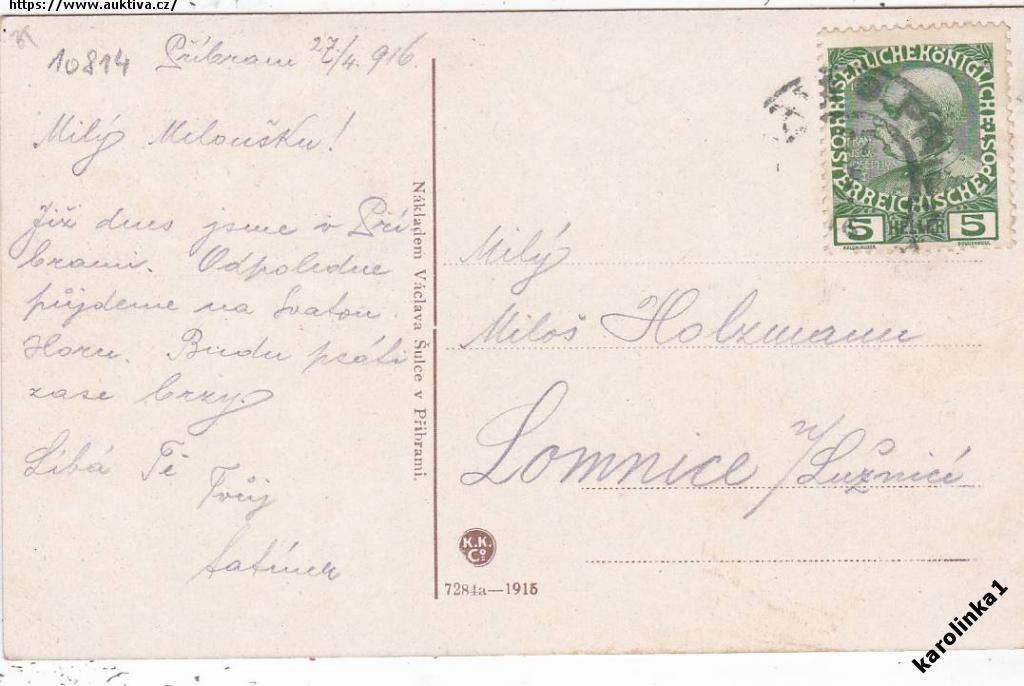 https://www.auktiva.cz/
10814
Příbram 27/4. 916
Milý Miloušku!
Již dnes jsme v Pří
brami. Odpoledne
půjdeme na Svatou
Horu. Budu psáti
zase brzy.
Líbá Tě
Tvůj
tatínek
Nákladem Václava Šulce v Příbrami.
K.K.
Co
7284a—1915
KAISERLICHE KÖNIGLICHE ÖSTERREICHISCHE POST
5 HELLER 5
Milý
Miloš Holzmann
Lomnice n/Lužnicí
karolinka1